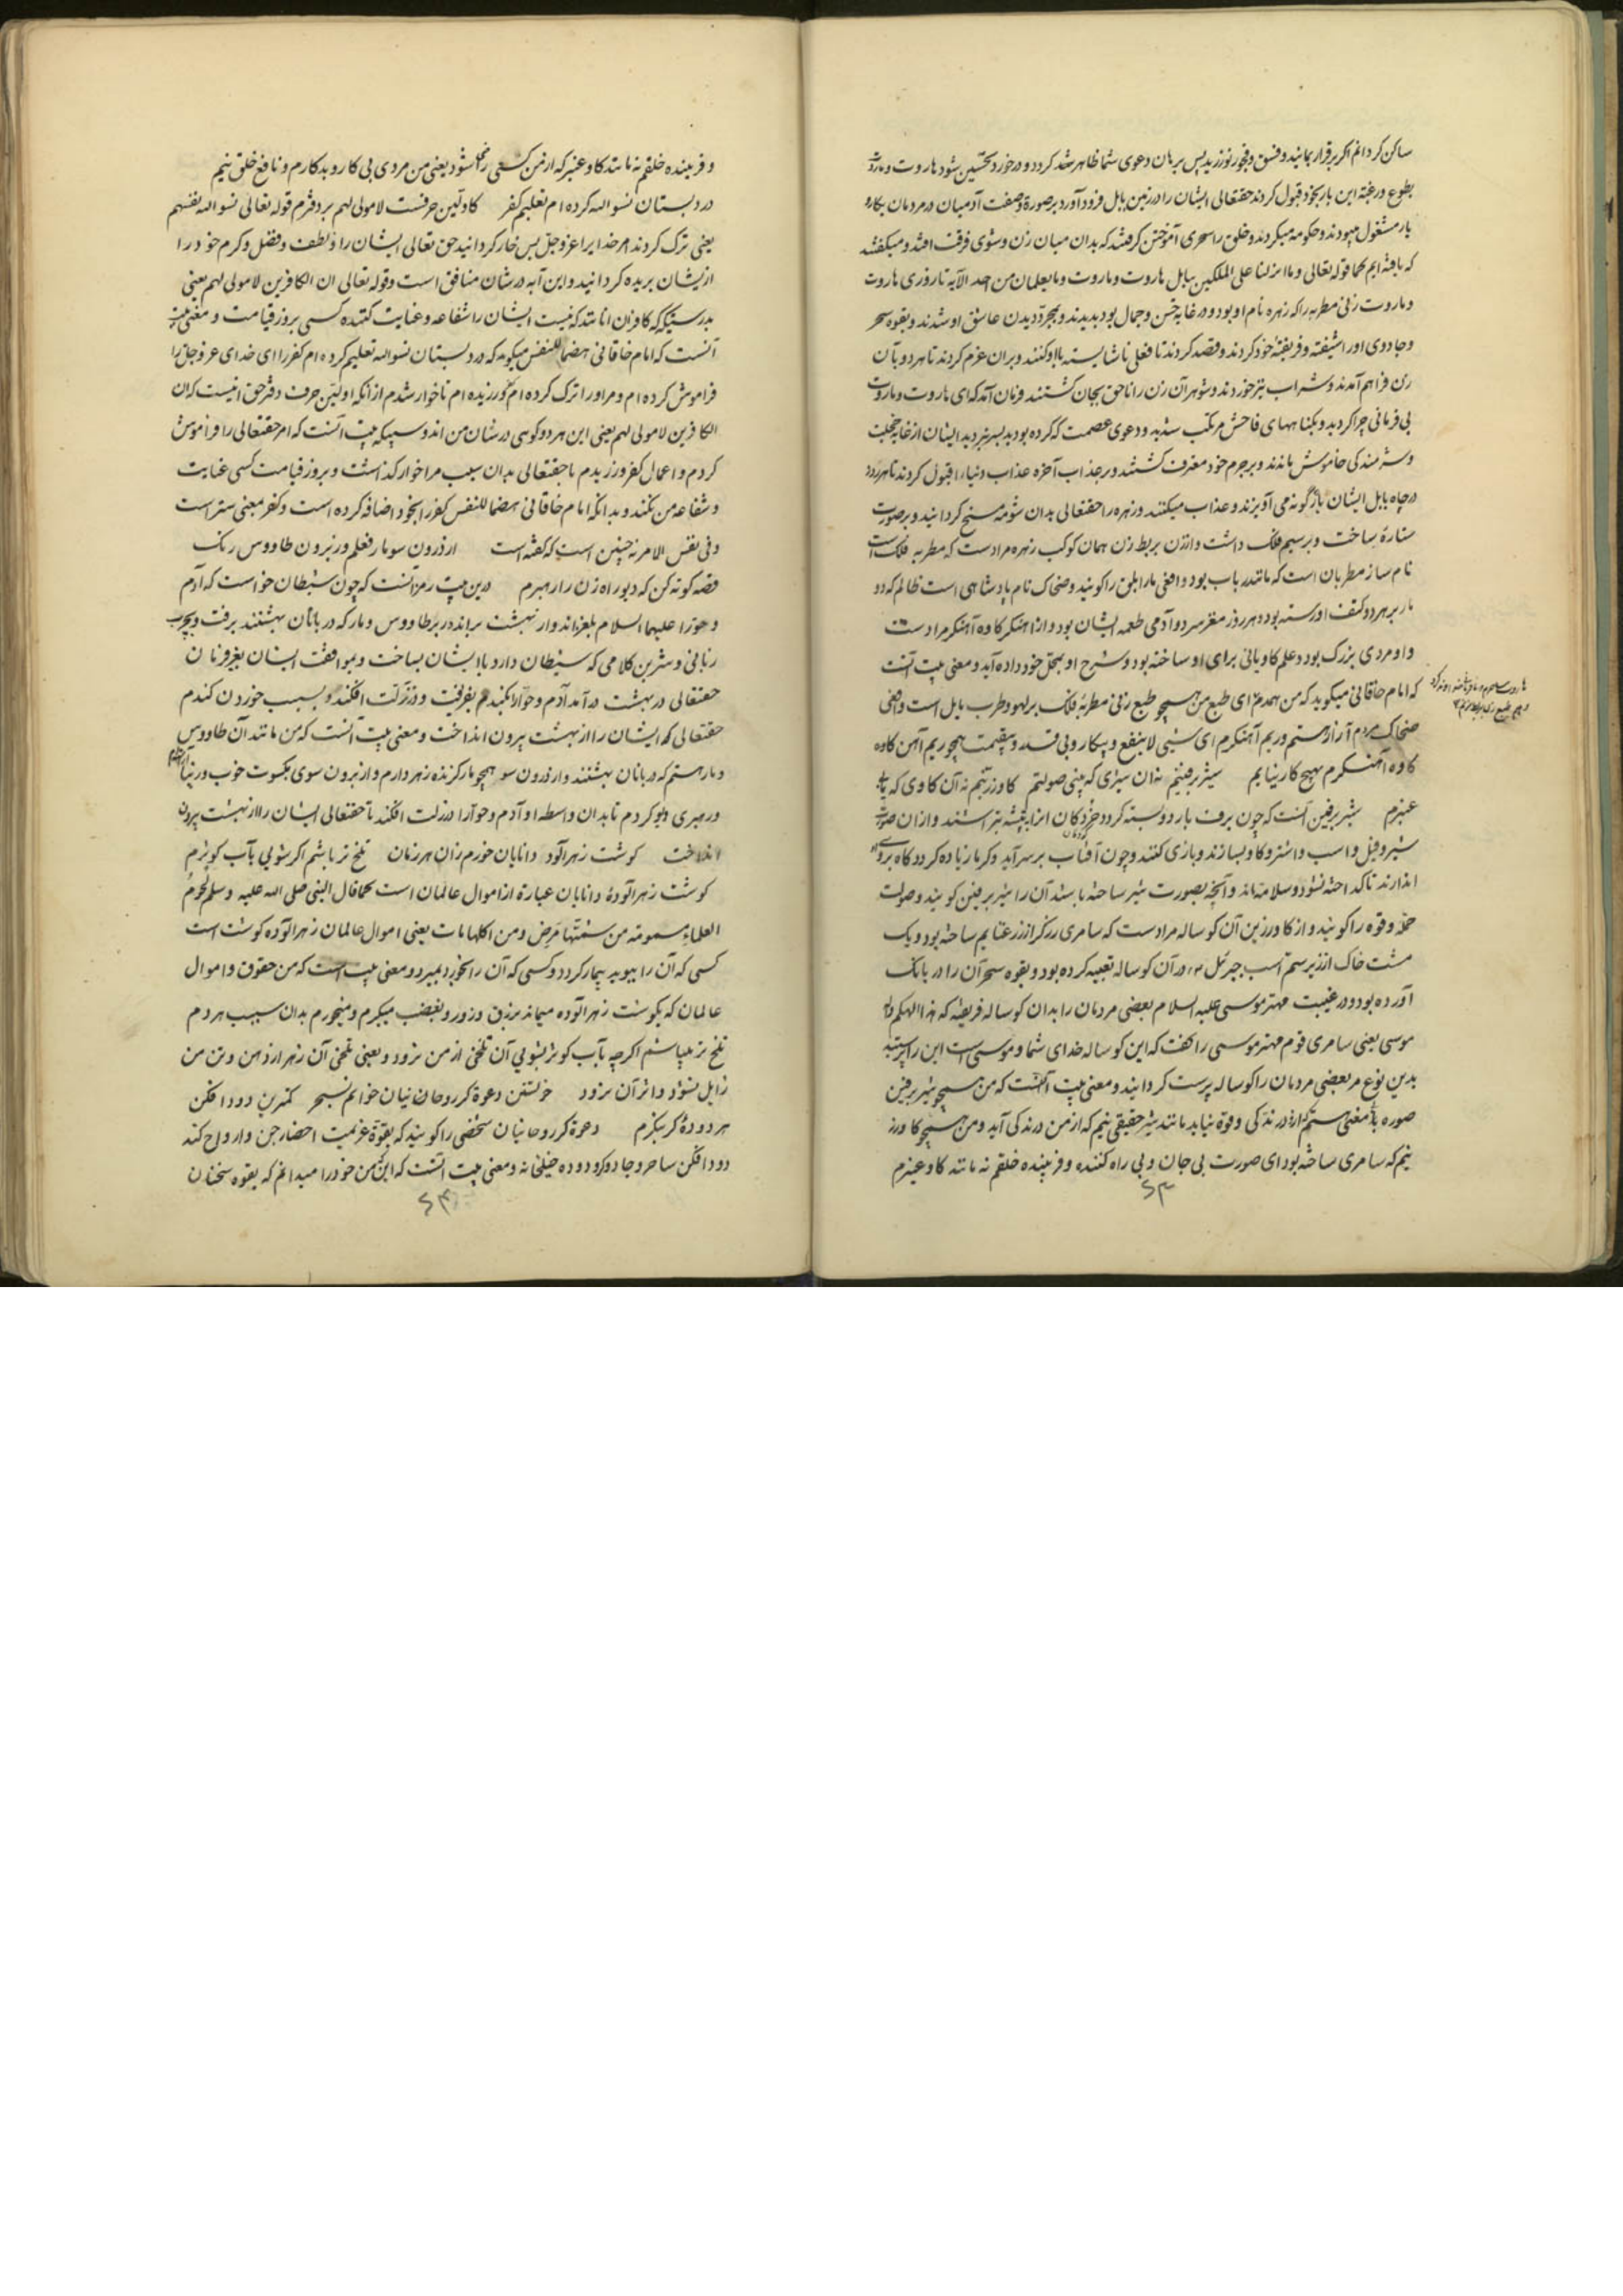 ساکن کردانم اکر برقرار بمانید و فسق و فجور نورزید پس برهان دعوی شما ظاهر شد کردد و در خورد تحسین شود هاروت و ماروت
بطوع و رغبة این بار بخود قبول کردند حقتعالی ایشان را در زمین بابل فرود آورد بر صورة و صفت آدمیان در مردمان بکارو
بار مشغول میبودند و حکومه میکردند و خلق را سحری آموختن کرفتند که بدان میان زن و شوی فرقت افتد و میکفتند
که یافته ایم کما قوله تعالی وما انزلنا علی الملکین ببابل هاروت وماروت وما یعلمان من احد الآیة تا روزی هاروت
و ماروت زنی مطربه را که زهره نام او بود و در غایة حسن و جمال بود بدیدند و بمجرد دیدن عاشق او شدند و بقوه سحر
و جادوی او را شیفته و فریفته خود کردند و قصد کردند تا فعلی ناشایسته با او کنند و بران عزم کردند تا هردو بآن
زن فراهم آمدند و شراب نیز خوردند و شوهر آن زن را ناحق بجان کشتند فرمان آمد که ای هاروت و ماروت
بی فرمانی چرا کردید و بکناههای فاحش مرتکب شدید و دعوی عصمت که کرده بودید بسر نبردید ایشان از غایة خجلت
و شرمندکی خاموش ماندند و بر جرم خود معترف کشتند و بر عذاب آخره عذاب دنیا را قبول کردند تا هر روز
در چاه بابل ایشان باژکونه می آویزند و عذاب میکنند و زهره را حقتعالی بدان شومه مسخ کردانید و بر صورت
ستارهٔ ساخت و بر سیم فلک داشت و ازن بربط زن همان کوکب زهره مراد ست که مطربه فلک است
نام ساز مطربان است که مانند رباب بود و افعی مار ابلق را کویند و ضحاک نام پادشاهی است ظالم که دو
مار بر هر دو کتف او رسته بود و هر روز مغز سر دو آدمی طعمه ایشان بود و از اهنکر کاوه آهنکر مراد ست
و او مردی بزرک بود و علم کاویانی برای او ساخته بود و شرح او بمحل خود داده آید و معنی بیت آنست
که امام خاقانی میکوید که من همدم ای طبع من همچو طبع زنی مطربهٔ فلک بر لهو و طرب مایل است و افعی
ضحاک مردم آزار هستم و ریم آهنکرم ای شیی لاینفع و بیکار و بی قدر و بیقیمت همچو ریم آهن کاوه
کاوه آهنکرم بهیچ کار نیایم    شیر برفینم نه آن شیری که بینی صولتم    کاو زرینم نه آن کاوی که یابی
عنبرم    شیر برفین آنست که چون برف بارد و بسته کردد خردکان انرا به تیشه بتراشند و ازان صورت
شیر و فیل و اسب و اشتر و کاو بسازند و بازی کنند و چون آفتاب بر سر آید و کرما زیاده کردد کاه بر وی
اندازند تا کداخته نشود و سلامة ماند و آنچه بصورت شیر ساخته باشد آن را شیر برفین کویند و صولت
حمله و قوه را کویند و از کاو زرین آن کوساله مراد ست که سامری زرکر از زر غنایم ساخته بود و یک
مشت خاک از زیر سم اسب جبرئیل در آن کوساله تعبیه کرده بود و بقوه سحر آن را در بانک
آورده بود و در غیبت مهتر موسی علیه السلام بعضی مردمان را بدان کوساله فریفته که هذا الهکم و اله
موسی یعنی سامری قوم مهتر موسی را کفت که این کوساله خدای شما و موسی است این را پرستید
بدین نوع مر بعضی مردمان را کوساله پرست کردانید و معنی بیت آنست که من همچو شیر برفین
صوره بی معنی هستم از من درندکی و قوه نیاید مانند شیر حقیقی نیم که از من درندکی آید و من همچو کاو زر
نیم که سامری ساخته بود ای صورت بی جان و بی راه کننده و فریبنده خلقم نه مانند کاو عنبرم
و فریبنده خلقم نه مانند کاو عنبر که از من کسی را نفع شود یعنی من مردی بی کار و بدکارم و نافع خلق نیم
در دبستان نسوا الله کرده ام تعلیم کفر    کاولین حرفست لا مولی لهم بر دفترم قوله تعالی نسوا الله فنسیهم
یعنی ترک کردند امر خدایرا عز و جل پس خوار کردانید حق تعالی ایشان را و لطف و فضل و کرم خود را
از یشان بریده کردانید و این آیه در شان منافق است و قوله تعالی ان الکافرین لا مولی لهم یعنی
بدرستیکه کافران انانند که نیست ایشان را شفاعه و عنایت کننده کسی بروز قیامت و معنی بیت
آنست که امام خاقانی هضما للنفس میکوید که در دبستان نسوا الله تعلیم کرده ام کفر را ای خدای عز و جل را
فراموش کرده ام و مر او را ترک کرده ام و کفر ورزیده ام تا خوار شدم از آنکه اولین حرف دفتر حق انیست که ان
الکافرین لا مولی لهم یعنی این هر دو کوهی در شان من اند و سپیکه بیت آنست که امر حقتعالی را فراموش
کردم و اعمال کفر ورزیدم تا حقتعالی بدان سبب مرا خوار کذاشت و بروز قیامت کسی عنایت
و شفاعه من نکند و بدانکه امام خاقانی هضما للنفس کفر را بخود اضافه کرده است و کفر معنی ستر است
و فی نفس الامر نه چنین است که کفته است    از درون سو مار فعلم وز برون طاووس رنک
قصه کوته کن که دیو راه زن را رهبرم    درین بیت رمز آنست که چون شیطان خواست که آدم
و حوا را علیهما السلام بلغزاند و از بهشت براند در بر طاووس و مار که دربانان بهشتند برفت و بچرب
زبانی و شیرین کلامی که شیطان دارد با ایشان بساخت و بموافقت ایشان بغیر فرمان
حقتعالی در بهشت در آمد آدم و حوا را بکید هم بفریفت و در زلت افکند و بسبب خوردن کندم
حقتعالی که ایشان را از بهشت بیرون انداخت و معنی بیت آنست که من مانند آن طاووس
و مار هستم که دربانان بهشتند و از درون سو همچو مار کزنده زهر دارم و از برون سوی بکسوت خوب و زیبا
و رهبری دیو کردم تا بدان واسطه او آدم و حوا را در زلت افکند تا حقتعالی ایشان را از بهشت بیرون
انداخت    کوشت زهر آلود دانایان خورم زان هر زمان    تلخ تر باشم اکر شویی بآب کوثرم
کوشت زهر آلوده دانایان عبارة از اموال عالمان است کما قال النبی صلی الله علیه وسلم لحوم
العلماء مسمومة من شمها مرض ومن اکلها مات یعنی اموال عالمان زهر آلوده کوشت است
کسی که آن را ببوید بیمار کردد و کسی که آن را بخورد بمیرد و معنی بیت است که من حقوق و اموال
عالمان که بکوشت زهر آلوده میماند بزرق و زور و بغضب میکیرم و میخورم بدان سبب هردم
تلخ تر میباشم اکرچه بآب کوثر بشویی آن تلخی از من نرود و یعنی تلخی آن زهر از دهن و تن من
زایل نشود و اثر آن نرود    خویشتن دعوة کر روحانیان خوانم بسحر    کمترین دود افکن
هر دودهٔ کر بنکرم    دعوة کر روحانیان شخصی را کویند که بقوة عزیمت احضار جن و ارواح کند
دود افکن ساحر و جادوکر و دوده خیلخانه و معنی بیت آنست که این من خود را میدانم که بقوه سخنان